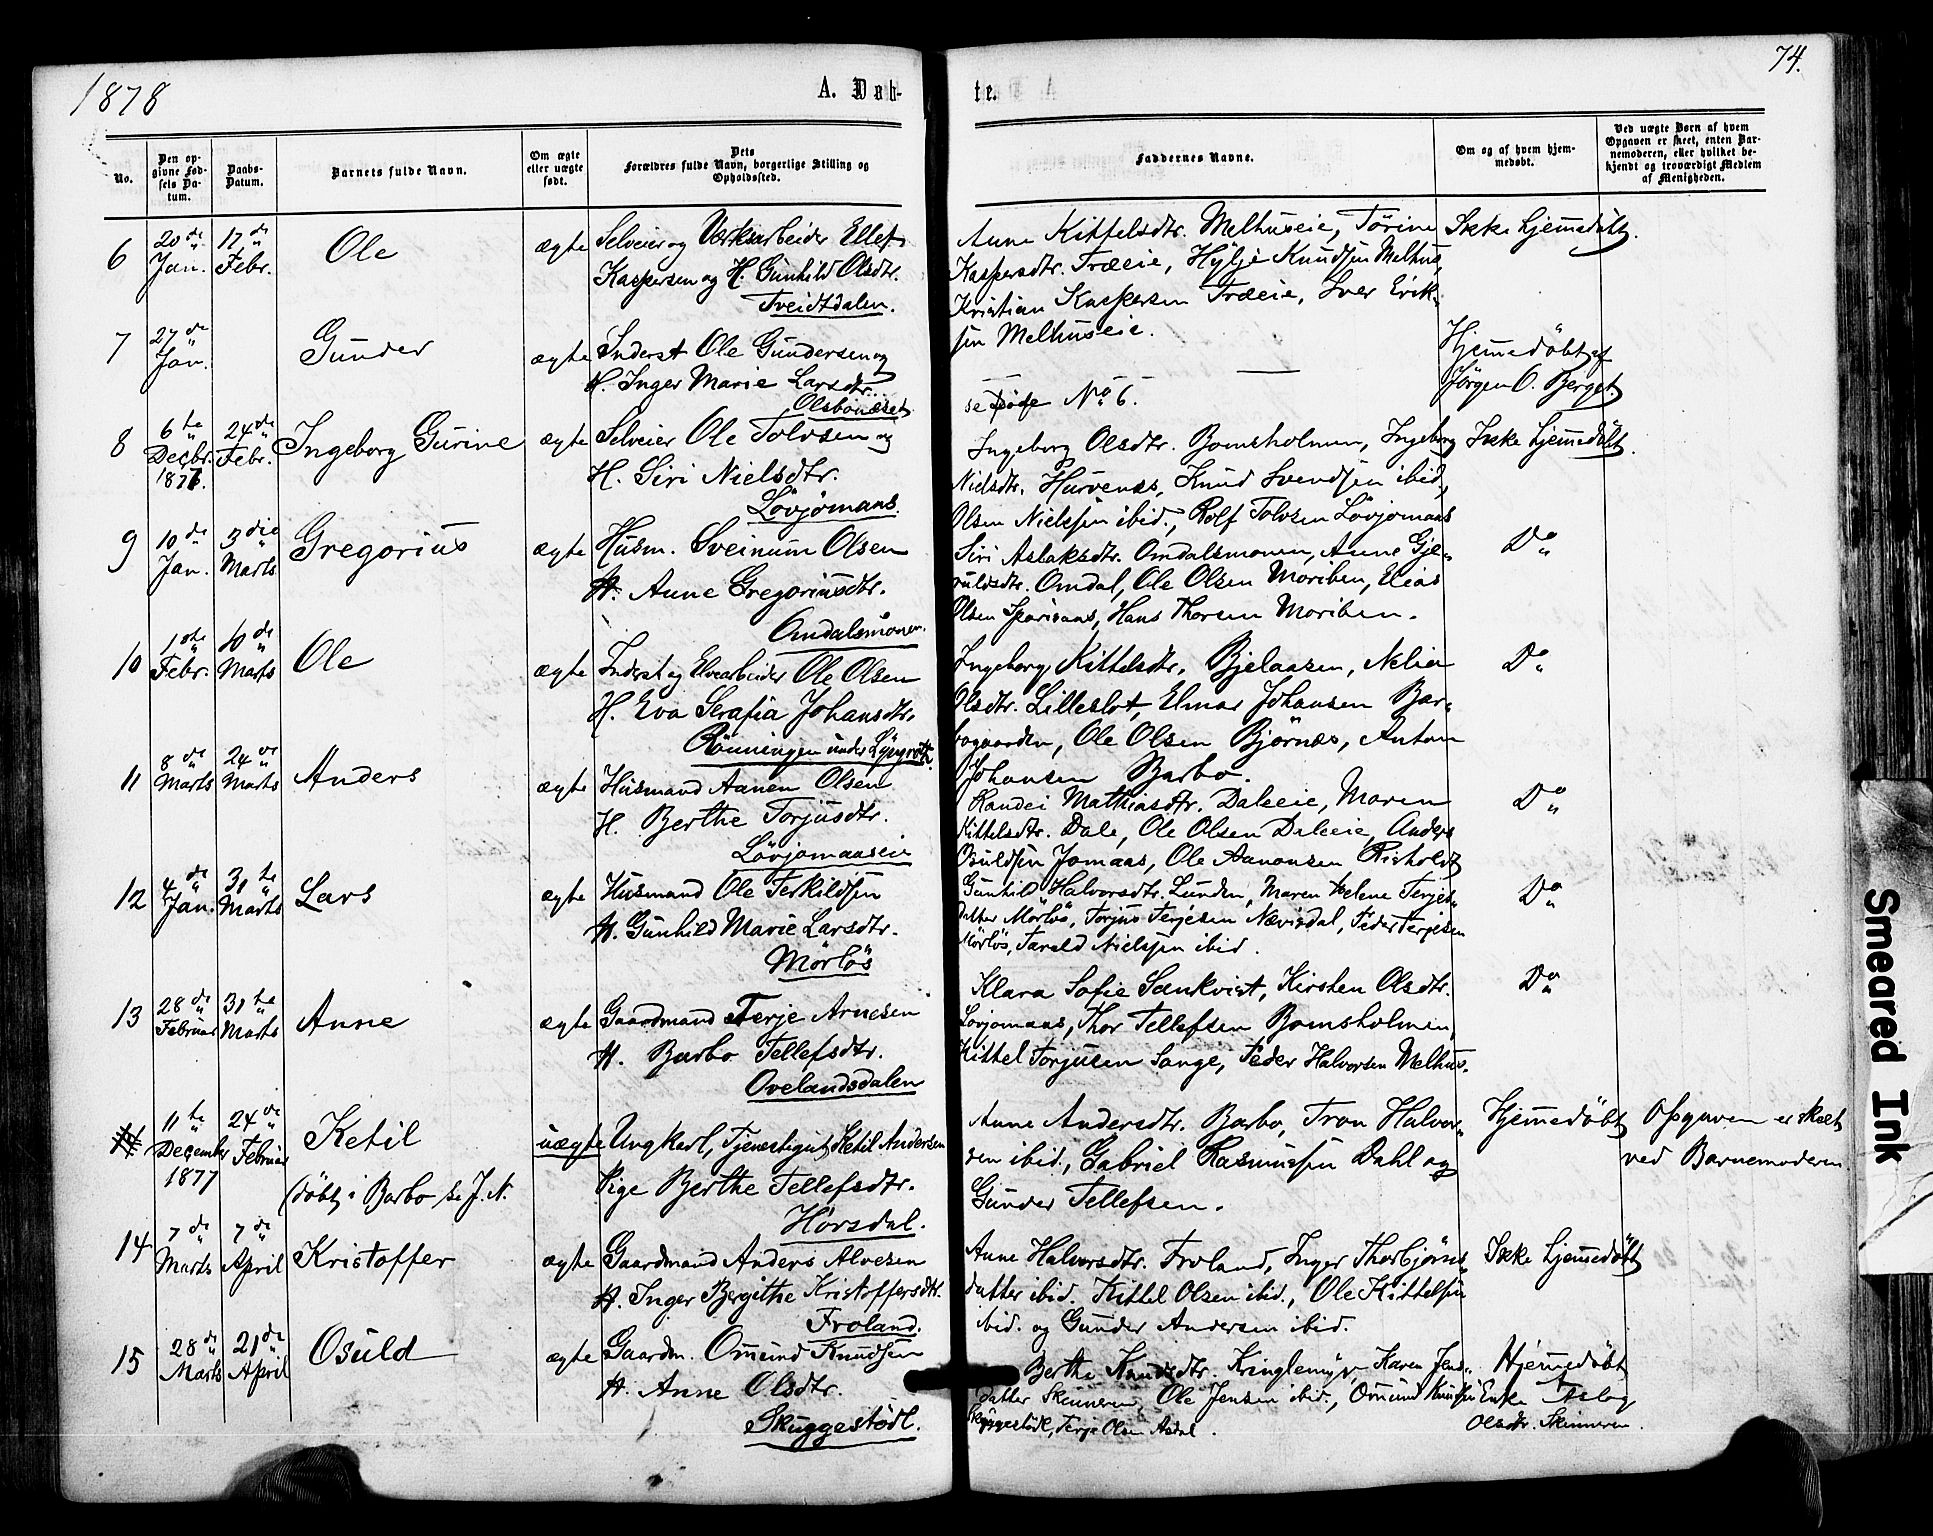 1878
A. Døb-
te.
74.
No.
Den op-
givne Fød-
sels Da-
tum.
Daabs-
Datum.
Barnets fulde Navn.
Om ægte
eller uægte
født.
Dets
Forældres fulde Navn, borgerlige Stilling og
Opholdssted.
Faddernes Navne.
Om og af hvem hjem-
medøbt.
Ved uægte Børn af hvem
Opgaven er skeet, enten Bar-
nemoderen, eller hvilket be-
kjendt og troværdigt Medlem
af Menigheden.
6
20de
Jan.
17de
Febr.
Ole
ægte
Selveier og Værksarbeider Ellef
Kaspersen og H. Gunhild Olsdtr.
Tveidtdalen.
Anne Kittelsdtr. Melhuseie, Tørine
Kaspersdtr. Træeie, Hylje Knudsen Melhus,
Kristian Kaspersen Træeie, Iver Erik-
sen Melhuseie.
Ikke hjemmedøbt.
7
27de
Jan.
Gunder
ægte
Inderst Ole Gundersen og
H. Inger Marie Larsdtr.
se No. 6.
Hjemmedøbt af
Jørgen O. Berget.
8
6te
Decbr.
1877.
24de
Febr.
Ingeborg Gurine
ægte
Selveier Ole Tolvsen og
H. Siri Nielsdtr.
Løvjomaas.
Ingeborg Olsdtr. Bomsholmen, Ingeborg
Nielsdtr. Hurvenes, Knud Svendsen ibid,
Olsen Nielsen ibid., Rolf Tolvsen Løvjomaas
Ikke hjemmedøbt.
9
10de
Jan.
3die
Marts
Gregorius
ægte
Husm. Sveinum Olsen
H. Anne Gregoriusdtr.
Omdalsmonen.
Siri Aslaksdtr. Omdalsmonen, Anne Gje-
ruldsdtr. Omdal, Ole Olsen Moriben, Elias
Olsen, Hans Thorsen Moriben.
Do
10
1ste
Febr.
10de
Marts
Ole
ægte
Inderst og Elvearbeider Ole Olsen
H. Eva Serafia Johansdtr.
Rønningen under
Ingeborg Kittelsdtr. Bjelaasen, Nelia
Olsdtr. Lilleslot, Elmar Johansen Bar-
bogaarden, Ole Olsen Bjørnes, Anton
Johansen Barbo.
Do
11
8de
Marts
24de
Marts
Anders
ægte
Husmand Aanen Olsen
H. Berthe Torjusdtr.
Løvjomaaseie
Kandei Mathiasdtr. Daleeie, Maren
Kittelsdtr. Dale, Ole Olsen Daleeie, Anders
Osuldsen Jomaas, Ole Aanonsen Risholdt
Do
12
4de
Jan.
31te
Marts
Lars
ægte
Husmand Ole Terkildsen
H. Gunhild Marie Larsdtr.
Mørløs
Gunhild Halvorsdtr. Lunden, Maren Helene Terjes-
datter Mørløs, Torjus Terjesen Nævisdal, Peder Terjesen
Mørløs, Tarald Nielsen ibid.
Do
13
28de
Februar
31te
Marts
Anne
ægte
Gaardmand Terje Arnesen
H. Barbo Tellefsdtr.
Ovelandsdalen
Klara Sofie Sankvist, Kirsten Olsdtr.
Løvjomaas, Thor Tellefsen Bomsholmen,
Kittel Torjusen Sange, Peder Halvorsen Melhus.
Do
11te
December
1877
24de
Februar
Ketil
(døbt i Barbo se J.N.
uægte
Ungkarl, Tjenestegut Ketil Andersen
Pige Berthe Tellefsdtr.
Hørsdal.
Anne Andersdtr. Barbo, Tron Halvor-
sen ibid., Gabriel Rasmussen Dahl og
Gunder Tellefsen.
Hjemmedøbt
Opgaven er skeet
ved Barnemoderen.
14
7de
Marts
7de
April
Kristoffer
ægte
Gaardmand Anders Alvesen
H. Inger Bergithe Kristoffersdtr.
Froland.
Anne Halvorsdtr. Froland, Inger Thorbjørns-
datter ibid. Kittel Olsen ibid., Ole Kittelsen
ibid. og Gunder Andersen ibid.
Ikke hjemmedøbt
15
28de
Marts
21de
April
Osuld
ægte
Gaardm. Omund Knudsen
H. Anne Olsdtr.
Skuggestødl.
Berthe Knudsdtr. Kringlemyr, Karen Jens-
datter Skinneren, Ole Jensen ibid., Omund Knudsen
Skuggestøl, Terje Olsen Asdal.
Hjemmedøbt
Enke Aslaug
Olsdtr. Skinneren
Smeared Ink